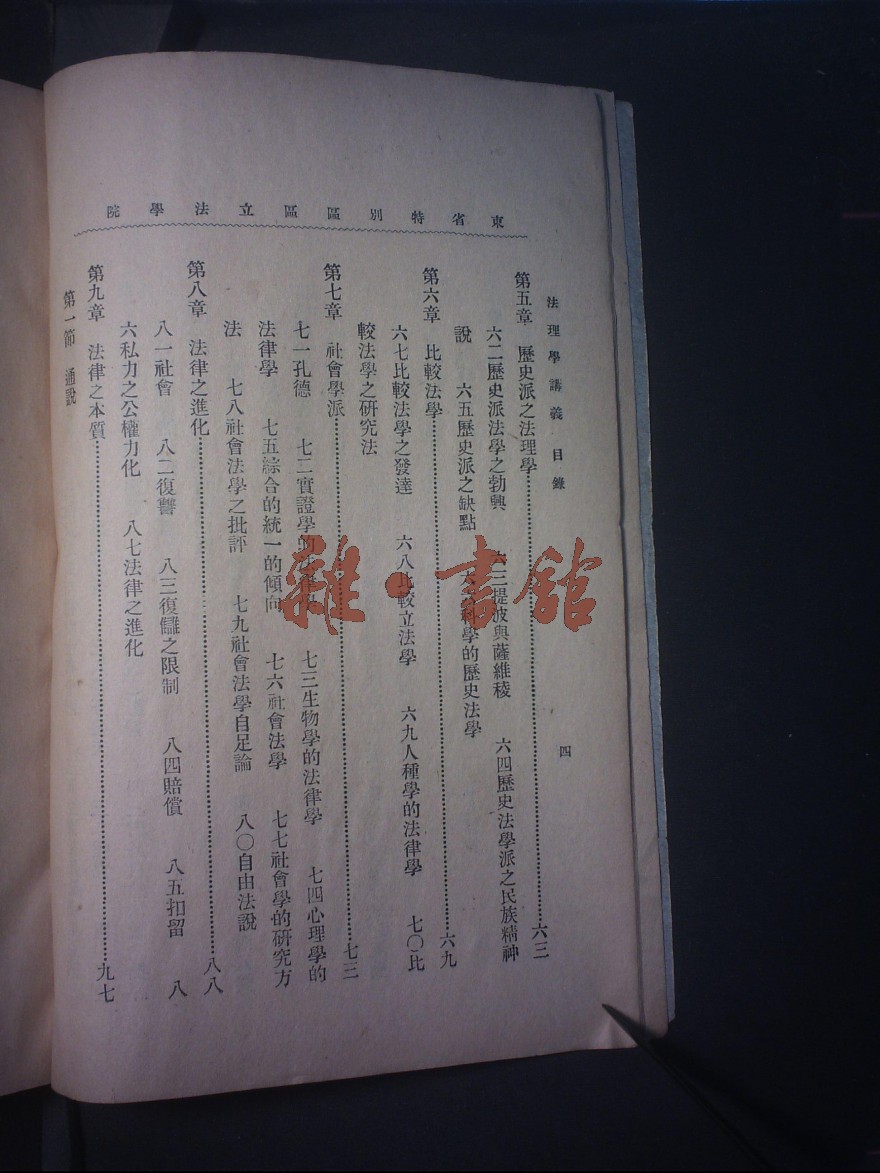 東省特別區區立法學院
法理學講義 目錄
四
第五章 歷史派之法理學……六三
六二歷史派法學之勃興 六三提波與薩維稜 六四歷史法學派之民族精神
說 六五歷史派之缺點 六六科學的歷史法學
第六章 比較法學……六九
六七比較法學之發達 六八比較立法學 六九人種學的法律學 七〇比
較法學之研究法
第七章 社會學派……七三
七一孔德 七二實證學的法律學 七三生物學的法律學 七四心理學的
法律學 七五綜合的統一的傾向 七六社會法學 七七社會學的研究方
法 七八社會法學之批評 七九社會法學自足論 八〇自由法說
第八章 法律之進化……八八
八一社會 八二復讐 八三復讎之限制 八四賠償 八五扣留 八
六私力之公權力化 八七法律之進化
第九章 法律之本質……九七
第一節 通說
雜·書館